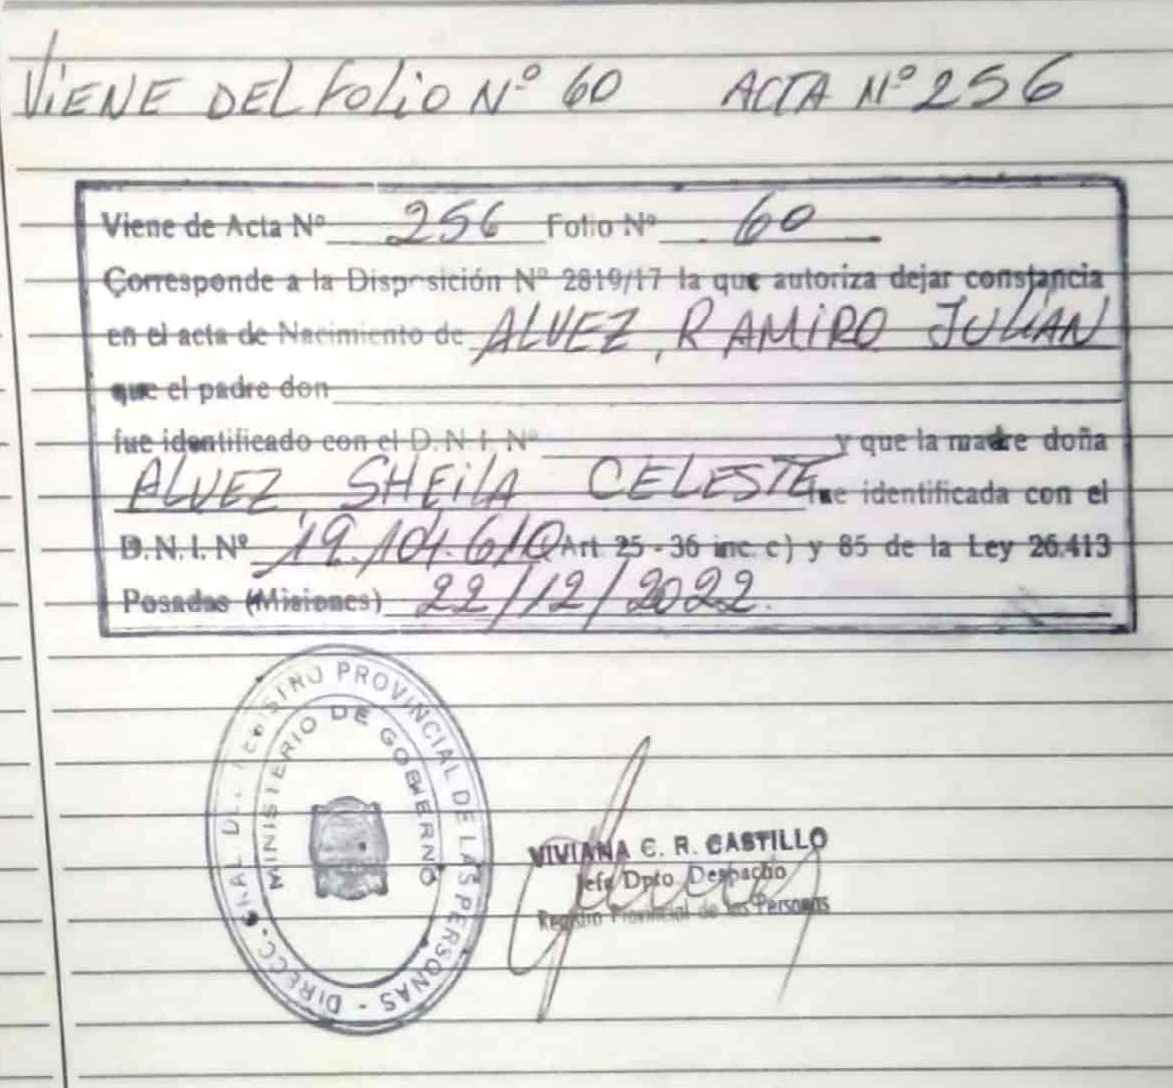 VIENE DEL FOLIO Nº 60 ACTA Nº 256
Viene de Acta Nº 256 Folio Nº 60
Corresponde a la Disposición Nº 2819/17 la que autoriza dejar constancia
en el acta de Nacimiento de ALVEZ, RAMIRO JULIAN
que el padre don
fue identificado con el D.N.I. Nº y que la madre doña
ALVEZ SHEILA CELESTE fue identificada con el
D.N.I. Nº 19.104.610 Art 25 - 36 inc. c) y 85 de la Ley 26.413
Posadas (Misiones) 22/12/2022.
DIRECC. GRAL. DEL REGISTRO PROVINCIAL DE LAS PERSONAS -
MINISTERIO DE GOBIERNO
VIVIANA C. R. CASTILLO
Jefe Dpto Despacho
Registro Provincial de las Personas